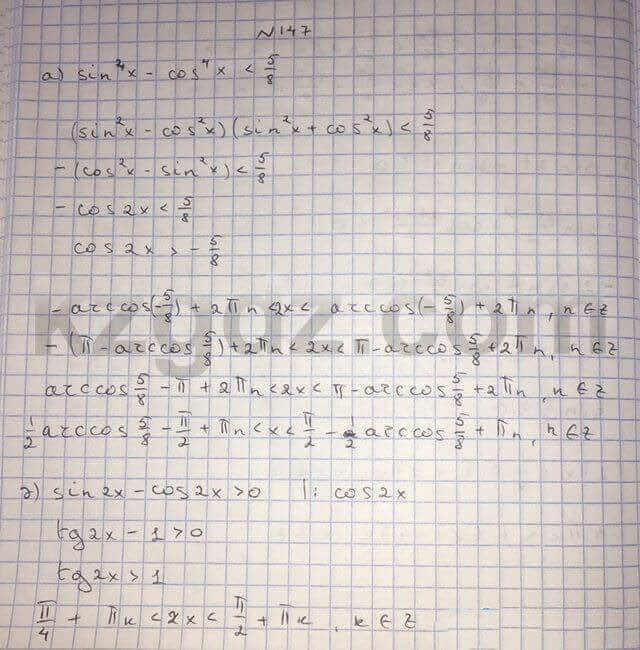 №147
а) sin⁴x - cos⁴x < 5/8
(sin²x - cos²x)(sin²x + cos²x) < 5/8
- (cos²x - sin²x) < 5/8
- cos2x < 5/8
cos2x > - 5/8
- arccos(-5/8) + 2πn < 2x < arccos(-5/8) + 2πn, n ∈ Z
- (π - arccos 5/8) + 2πn < 2x < π - arccos 5/8 + 2πn, n ∈ Z
arccos 5/8 - π + 2πn < 2x < π - arccos 5/8 + 2πn, n ∈ Z
1/2 arccos 5/8 - π/2 + πn < x < π/2 - 2 arccos 5/8 + πn, n ∈ Z
г) sin2x - cos2x > 0 |: cos2x
tg2x - 1 > 0
tg2x > 1
π/4 + πk < 2x < π/2 + πk, k ∈ Z